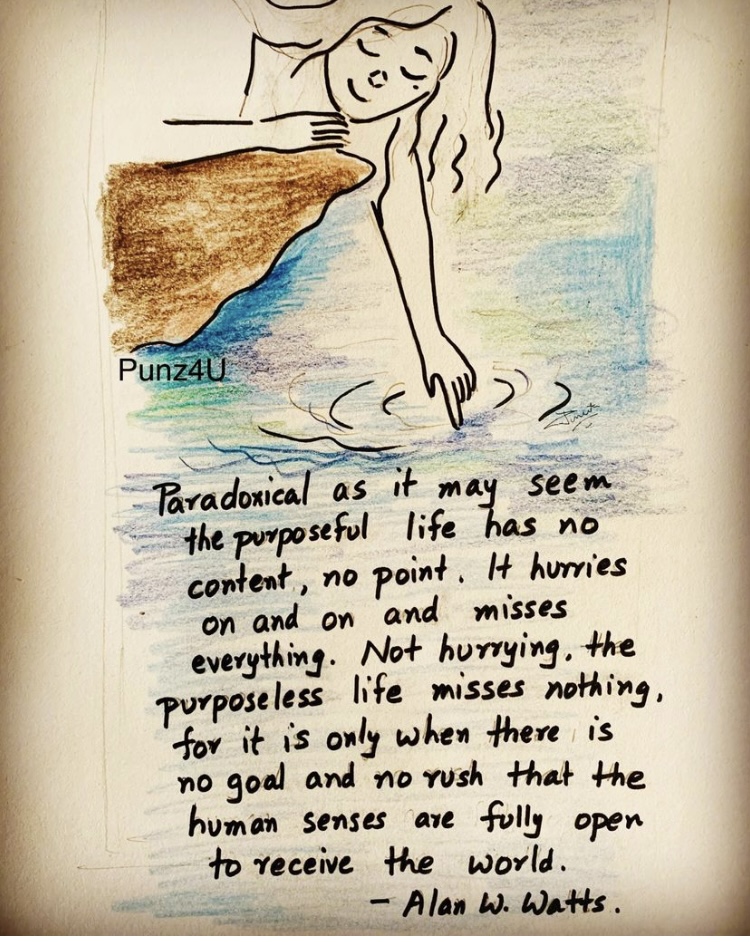 Punz4U
Paradoxical as it may seem
the purposeful life has no
content, no point. It hurries
on and on and misses
everything. Not hurrying, the
purposeless life misses nothing,
for it is only when there is
no goal and no rush that the
human senses are fully open
to receive the world.
- Alan W. Watts.